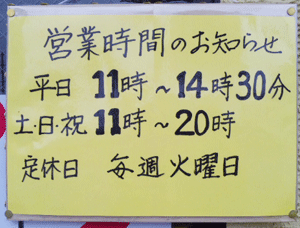 営業時間のお知らせ
平日 11時～14時30分
土・日・祝 11時～20時
定休日 毎週火曜日